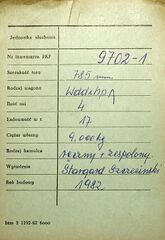 Jednostka służbowa
Nr inwentarza PKP 9702-1
Szerokość toru 785 mm
Rodzaj wagonu Wddshpx
Ilość osi 4
Ładowność w t 17
Ciężar własny 9.000 kg
Rodzaj hamulca ręczny + zespolony
Wytwórnia Stargard Szczeciński
Rok budowy 1982